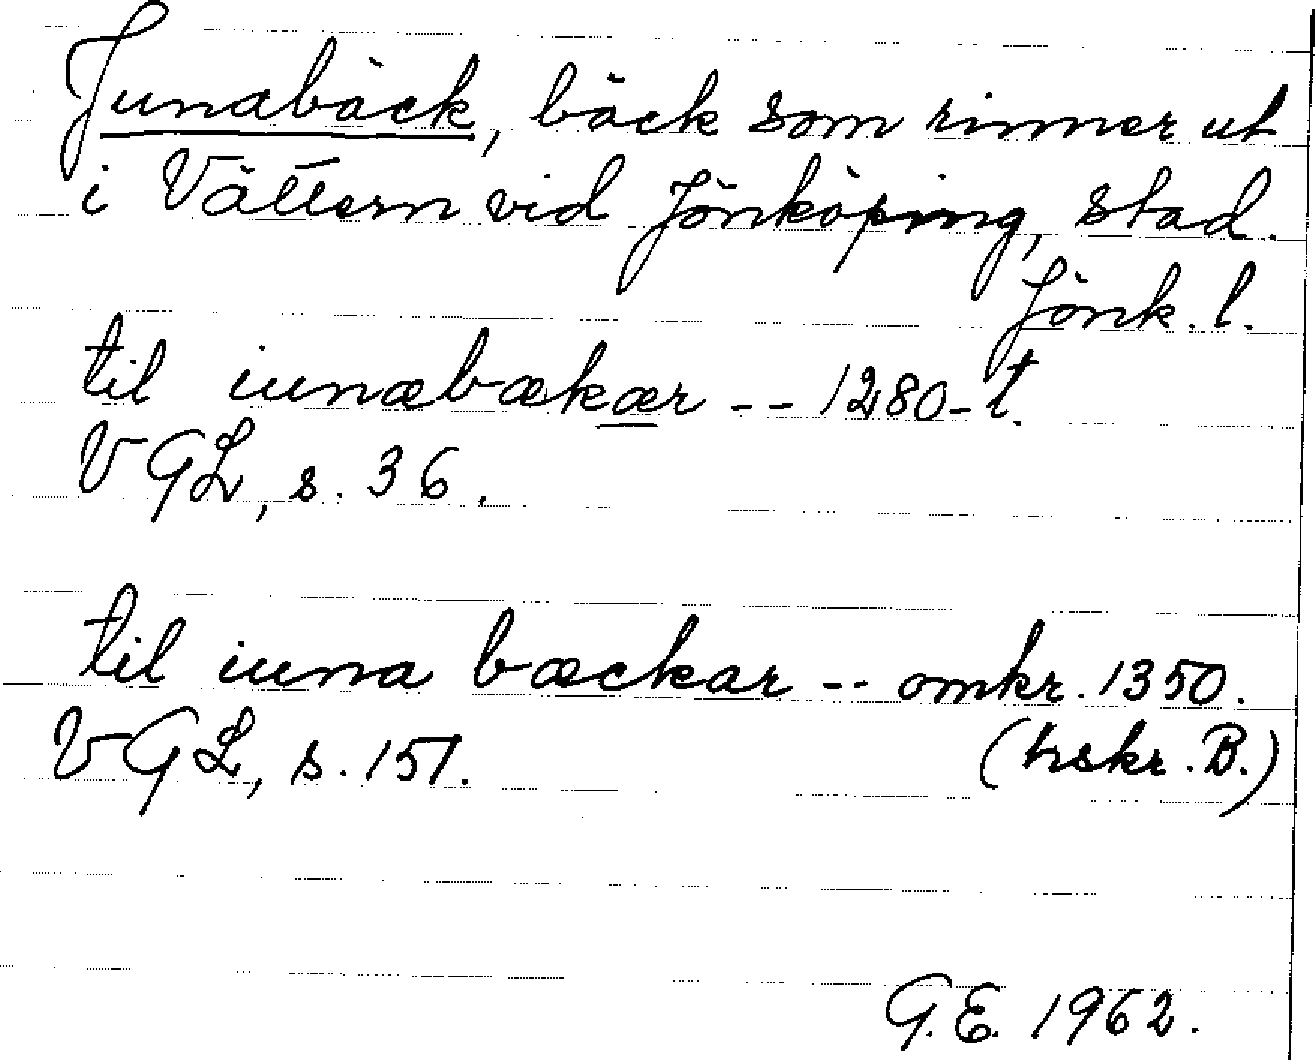 Junabäck, bäck som rinner ut
i Vättern vid Jönköping, stad.
Jönk. l.
til iunæbækær -- 1280-t.
VGL, s. 36.
til iuna bæckar -- omkr. 1350.
VGL, s. 151. (hskr. B.)
G.E. 1962.